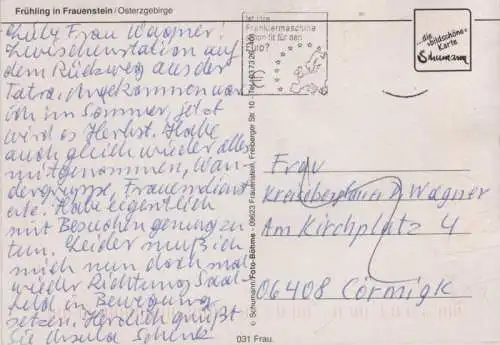 Frühling in Frauenstein/Osterzgebirge
Liebe Frau Wagner!
Zwischenstation auf
dem Rückweg aus der
Tatra. Angekommen war
ich im Sommer, jetzt
wird es Herbst. Habe
auch gleich wieder alles
mitgenommen, Wan-
dergruppe, Frauendienst
etc. Habe eigentlich
mit Besuchen genug zu
tun. Leider muß ich
mich nun doch mal
wieder Richtung Saal-
feld in Bewegung
setzen. Herzlich grüßt
Sie Ursula Schenk
Ist Ihre
Frankiermaschine
schon fit für den
Euro?
...die
»bildschöne«
Karte
Schumann
© Schumann/Foto-Böhme - 09623 Frauenstein, Freiberger Str. 10
Frau
Wagner
Am Kirchplatz 4
06408 Cörmigk
031 Frau.